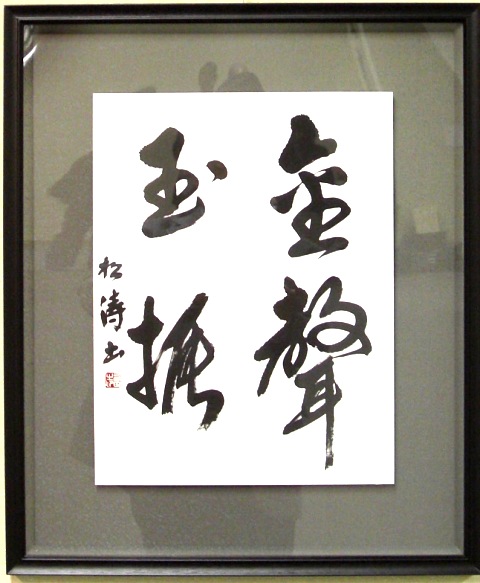 金聲
玉振
松濤書